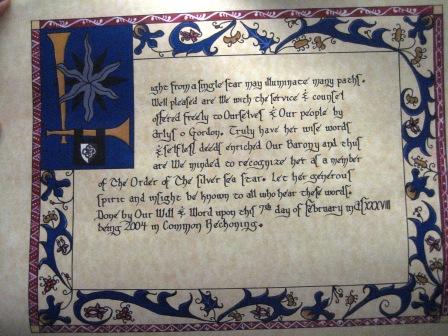 Light from a single star may illuminate many paths.
Well pleased are We with the service & counsel
offered freely to Ourselves & Our people by
Arlys o Gordon. Truly have her wise words
& selfless deeds enriched Our Barony and thus
are We minded to recognize her as a member
of The Order of The Silver Sea Star. Let her generous
spirit and insight be known to all who hear these words.
Done by Our Will & Word upon this 7th day of February m ASXXXVIII
being 2004 in Common Reckoning.